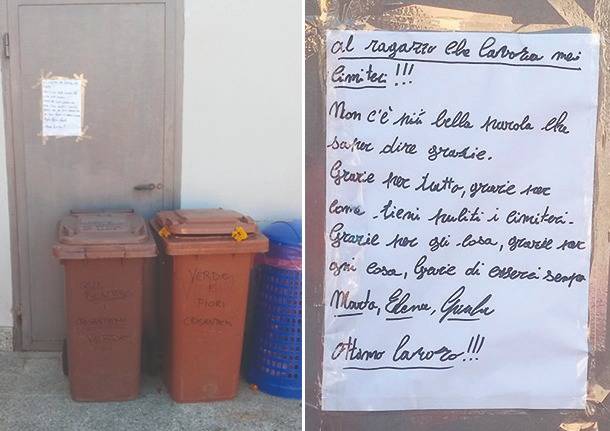 VERDE
E
FIORI
VERDE
Al ragazzo che lavora nei
cimiteri!!!
Non c'è più bella parola che
saper dire grazie.
Grazie per tutto, grazie per
come tieni puliti i cimiteri.
Grazie per gli cosa, grazie per
ogni cosa, Grazie di esserci sempre
Marta, Elena,
Ottimo lavoro!!!